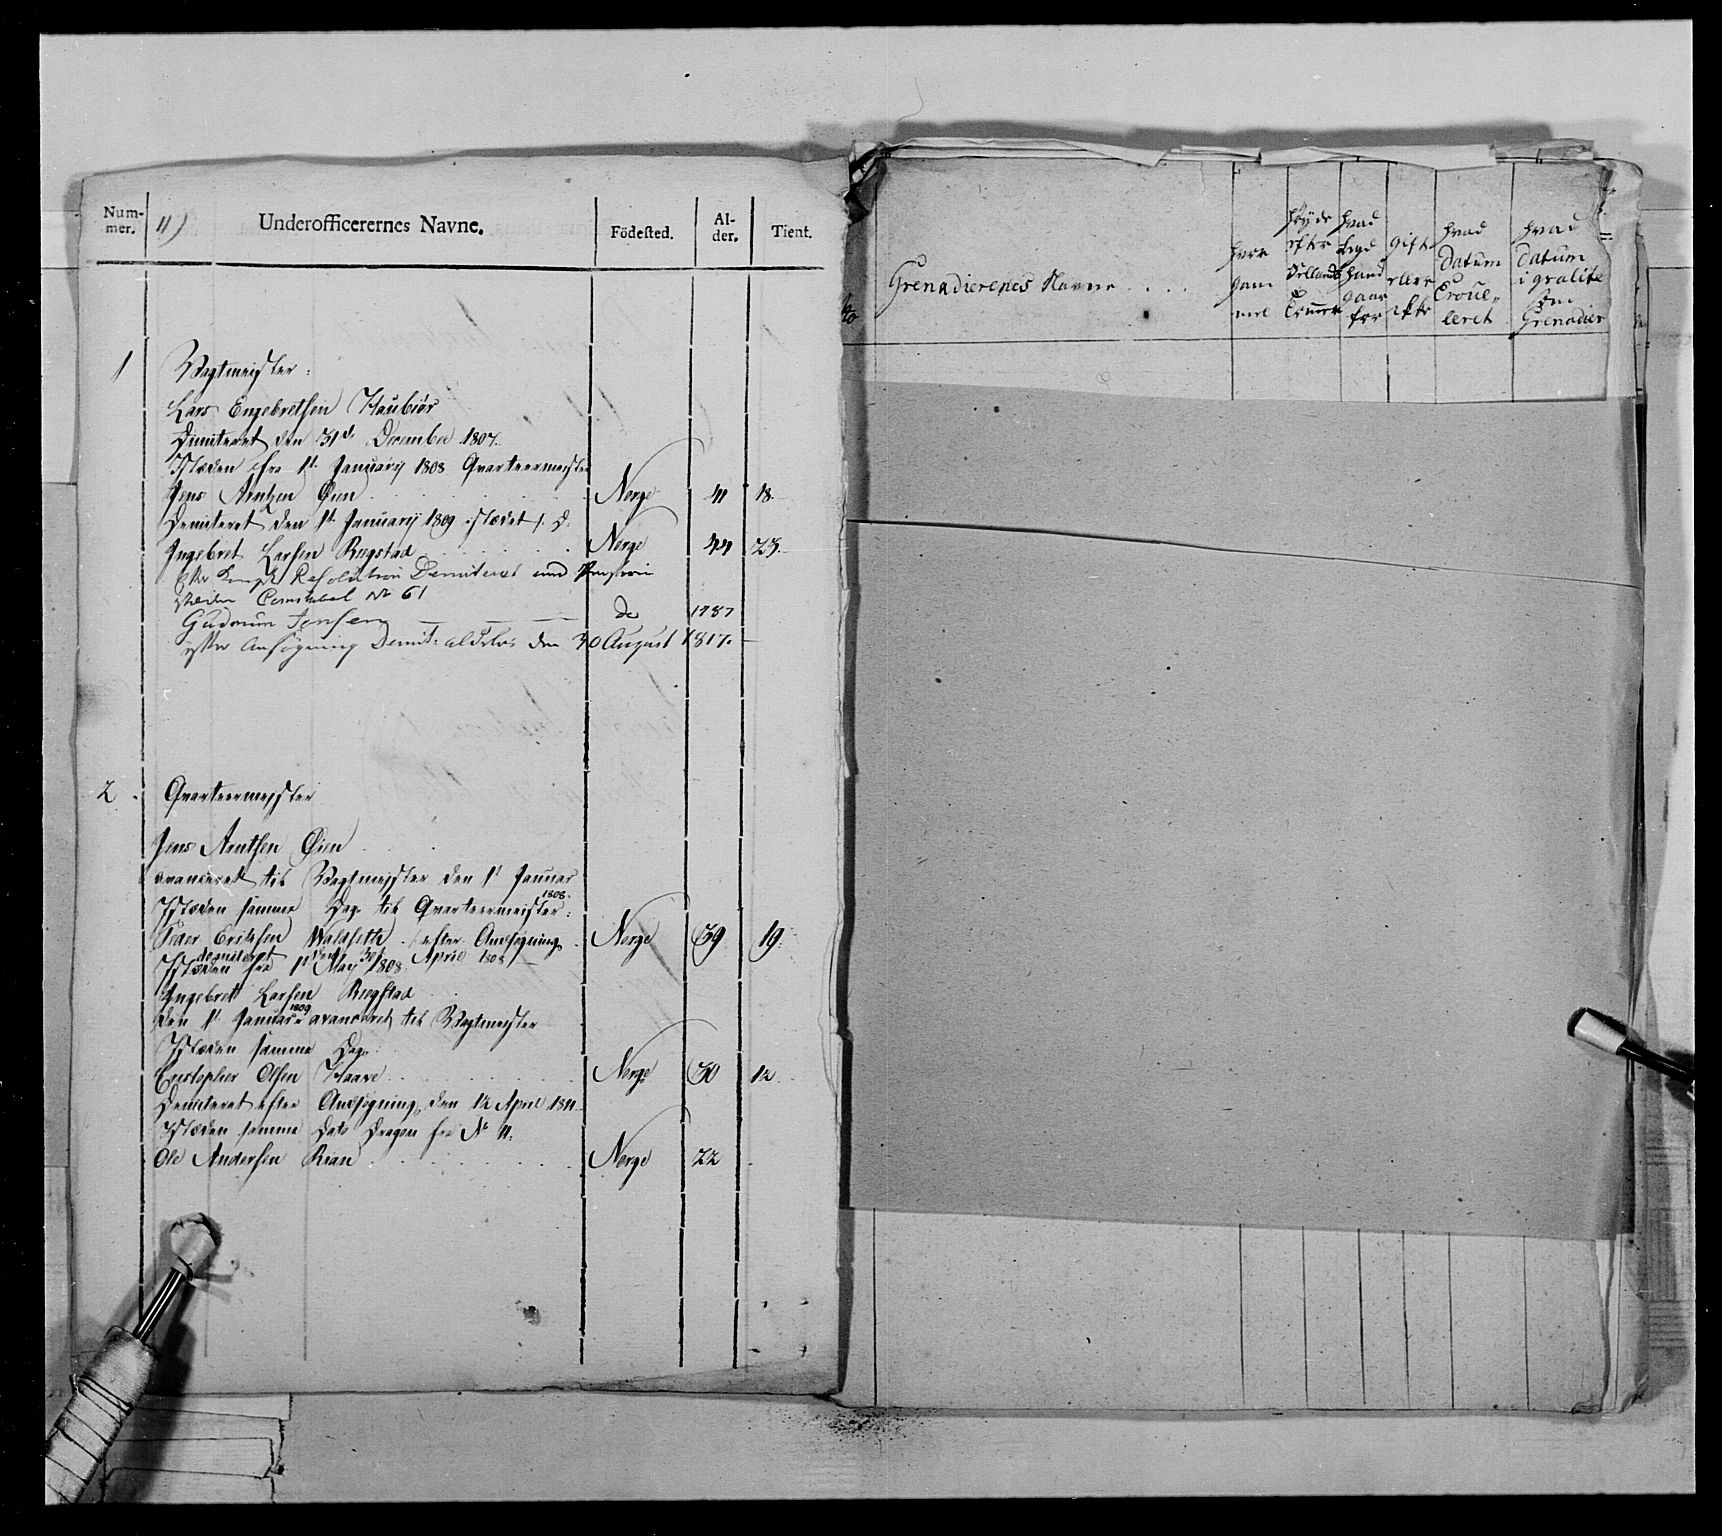 Num-
mer.
11)
Underofficerernes Navne.
Födested.
Al-
der.
Tient.
1
Wagtmeister:
Lars Engebretsen Haubiör
Dimiteret den 31de December 1807.
Istæden fra 1st. Januarij 1808 Quarteermeister
Jens Arntzen Öien Norge 41 18.
Demiteret den 1st. Januarij 1809 istædet
Ingebret Larsen Rogstad Norge 44 23.
Resolution Demiteret med Pension
No 61
Gudmun Jensen do 1787
efter Ansøgning Demit: den 30 August 1817.
2.
Quarteermeister
Jens Arntsen Öien
avanceret til Wagtmeister den 1st Januar
1808.
Istæden samme Dag til Quarteermeister:
Peder Eriksen efter Ansøgning Norge 39 19.
demiteret den 30 April 1808
Istæden fra 1st May 1808
Ingebret Larsen Rogstad
den 1st Januar 1809 avanceret til Wagtmeister
Istæden samme Dag:
Christopher Olsen Haave Norge 30 12
Demiteret efter Ansøgning, den 12 April 1811.
Istæden samme Dato Dragon fra No 11:
Ole Andersen Rian Norge 22
Grenadierenes Navne
hvor
gam
mel
höyde
efter
hvad
Lægd
hand
gaar
for
gift
eller
hvad
Datum
Enroue-
leret
hvad
datum
i qvalite
som
Grenadier